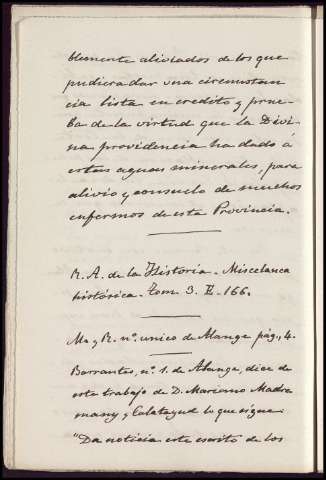 blemente aliviados de los que
pudiera dar una circunstan
cia lista en credito y prue-
ba de la virtud que la Divi
na providencia ha dado á
estas aguas minerales, para
alivio y consuelo de muchos
enfermos de esta Provincia.
R. A. de la Historia. Miscelanea
histórica. Tom. 3. E. 166.
M. y R. nº. unico de Alange pág. 4.
Barrantes, nº. 1. de Alange, dice de
este trabajo de D. Mariano Madra
many y Calatayud lo que sigue
"Da noticia este escrito de los